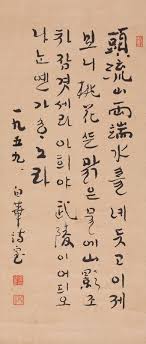 頭流山 兩端水를 녜 듯고 이제
보니 桃花 뜬 맑은 물에 山影조
차 잠겻세라 아희야 武陵이 어듸오
나는 옌가 하노라
一九五九. 白華詩室